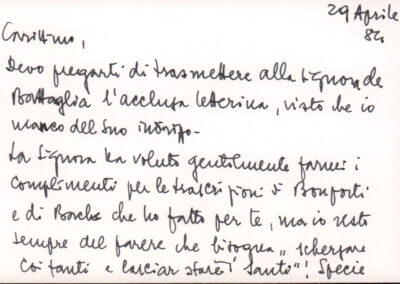 29 Aprile
84
Carissimo,
Devo pregarti di trasmettere alla Signora de
Battaglia l'acclusa letterina, visto che io
manco del suo indirizzo -
La Signora ha voluto gentilmente farmi i
complimenti per le trascrizioni di Bonporti
e di Bach che ho fatto per te, ma io resto
sempre del parere che bisogna "scherzare
coi fanti e lasciar stare i Santi"! Specie